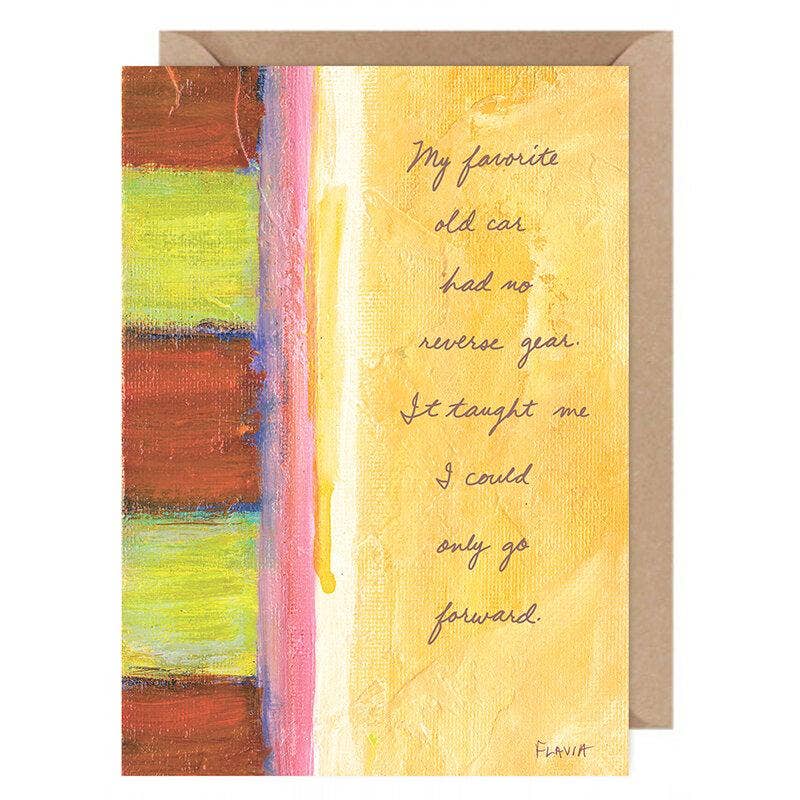 My favorite
old car
had no
reverse gear.
It taught me
I could
only go
forward.
FLAVIA